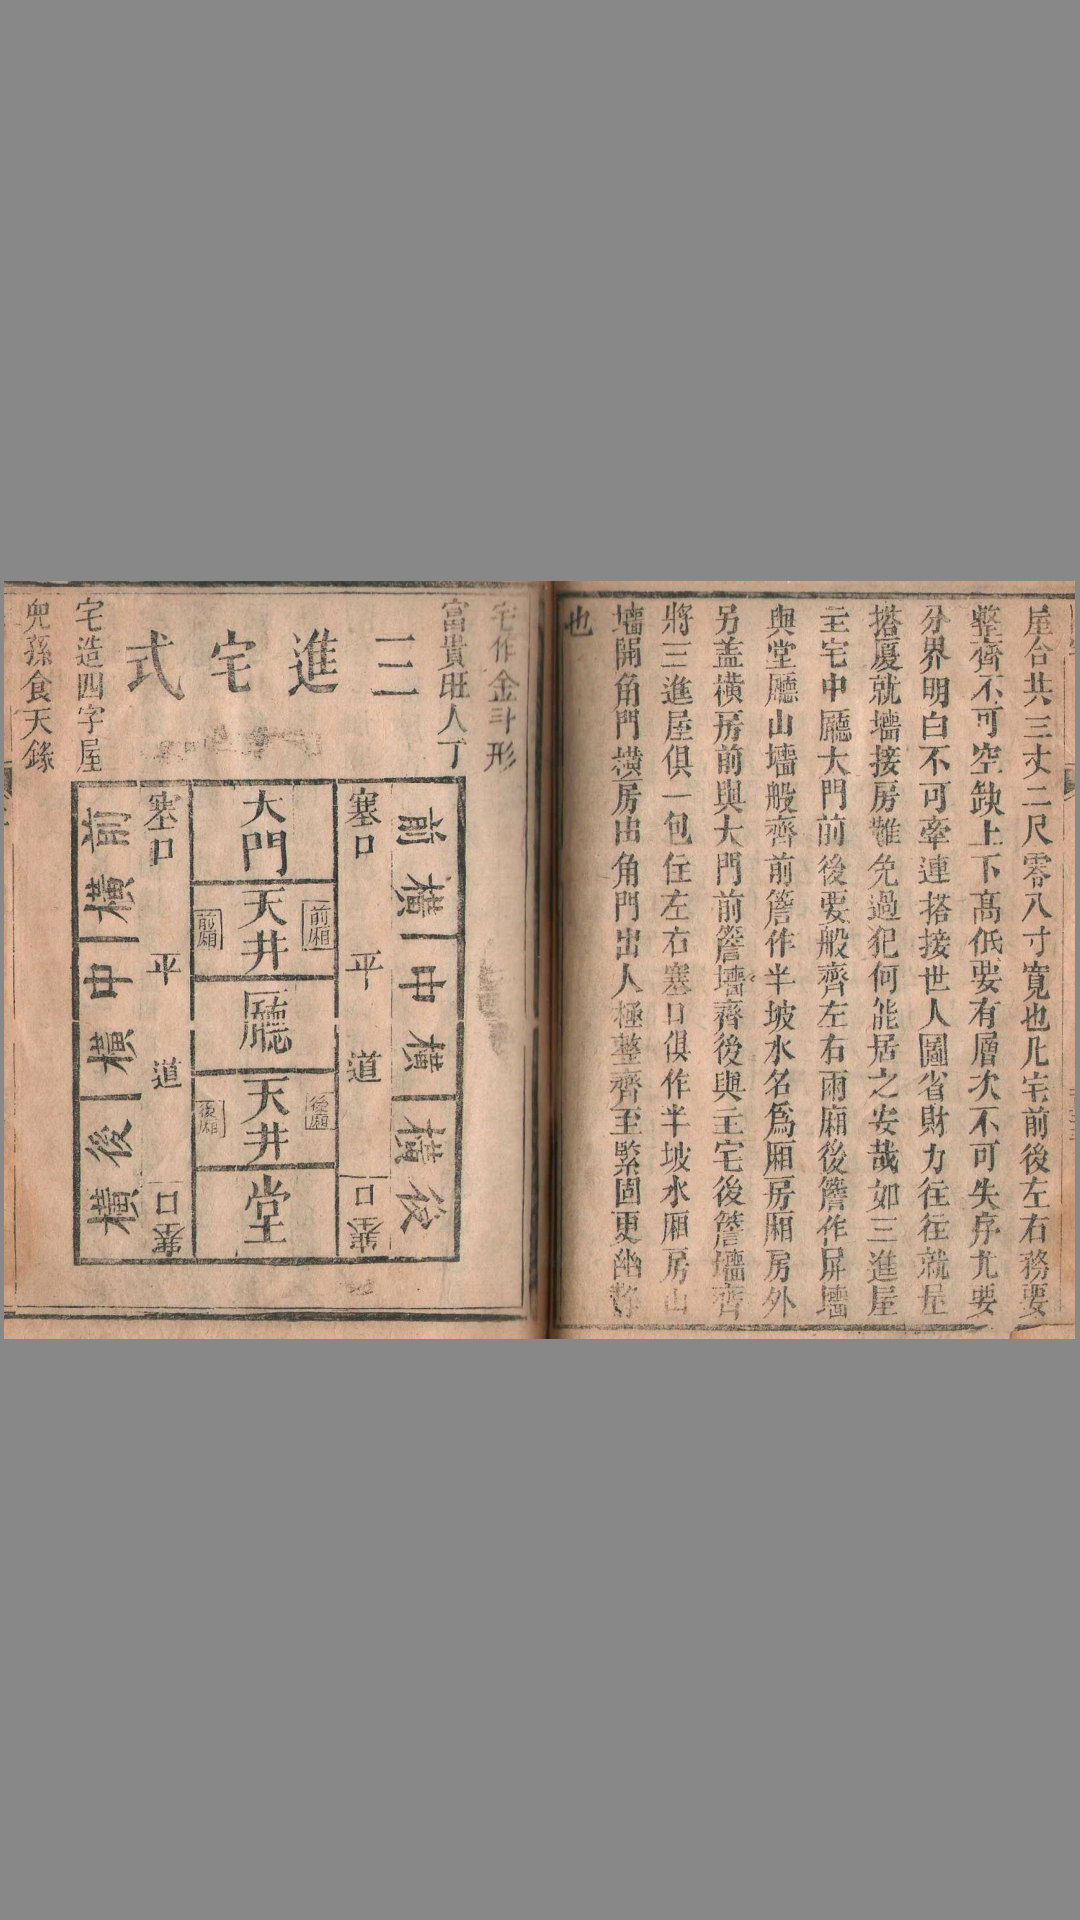 屋合共三丈二尺零八寸寬也凡宅前後左右務要
整齊不可空缺上下高低要有層次不可失序尤要
分界明白不可牽連搭接世人圖省財力往往就屋
搭廈就墻接房難免過犯何能居之安哉如三進屋
主宅中廳大門前後要般齊左右兩廂後簷作屏墻
與堂廳山墻般齊前簷作半坡水名爲廂房廂房外
另盖橫房前與大門前簷墻齊後與主宅後簷墻齊
將三進屋俱一包住左右塞口俱作半坡水廂房山
墻開角門橫房出角門出人極整齊至緊固更幽静
也
宅作金斗形
富貴旺人丁
三進宅式
宅造四字屋
兒孫食天祿
前橫
中橫
後橫
塞口
平道
塞口
大門
天井
前廂
前廂
廳
天井
後廂
後廂
堂
塞口
平道
塞口
前橫
中橫
後橫